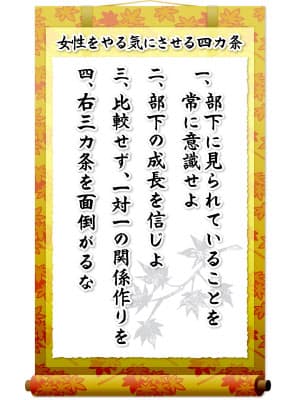 女性をやる気にさせる四カ条
一、部下に見られていることを
常に意識せよ
二、部下の成長を信じよ
三、比較せず、一対一の関係作りを
四、右三カ条を面倒がるな